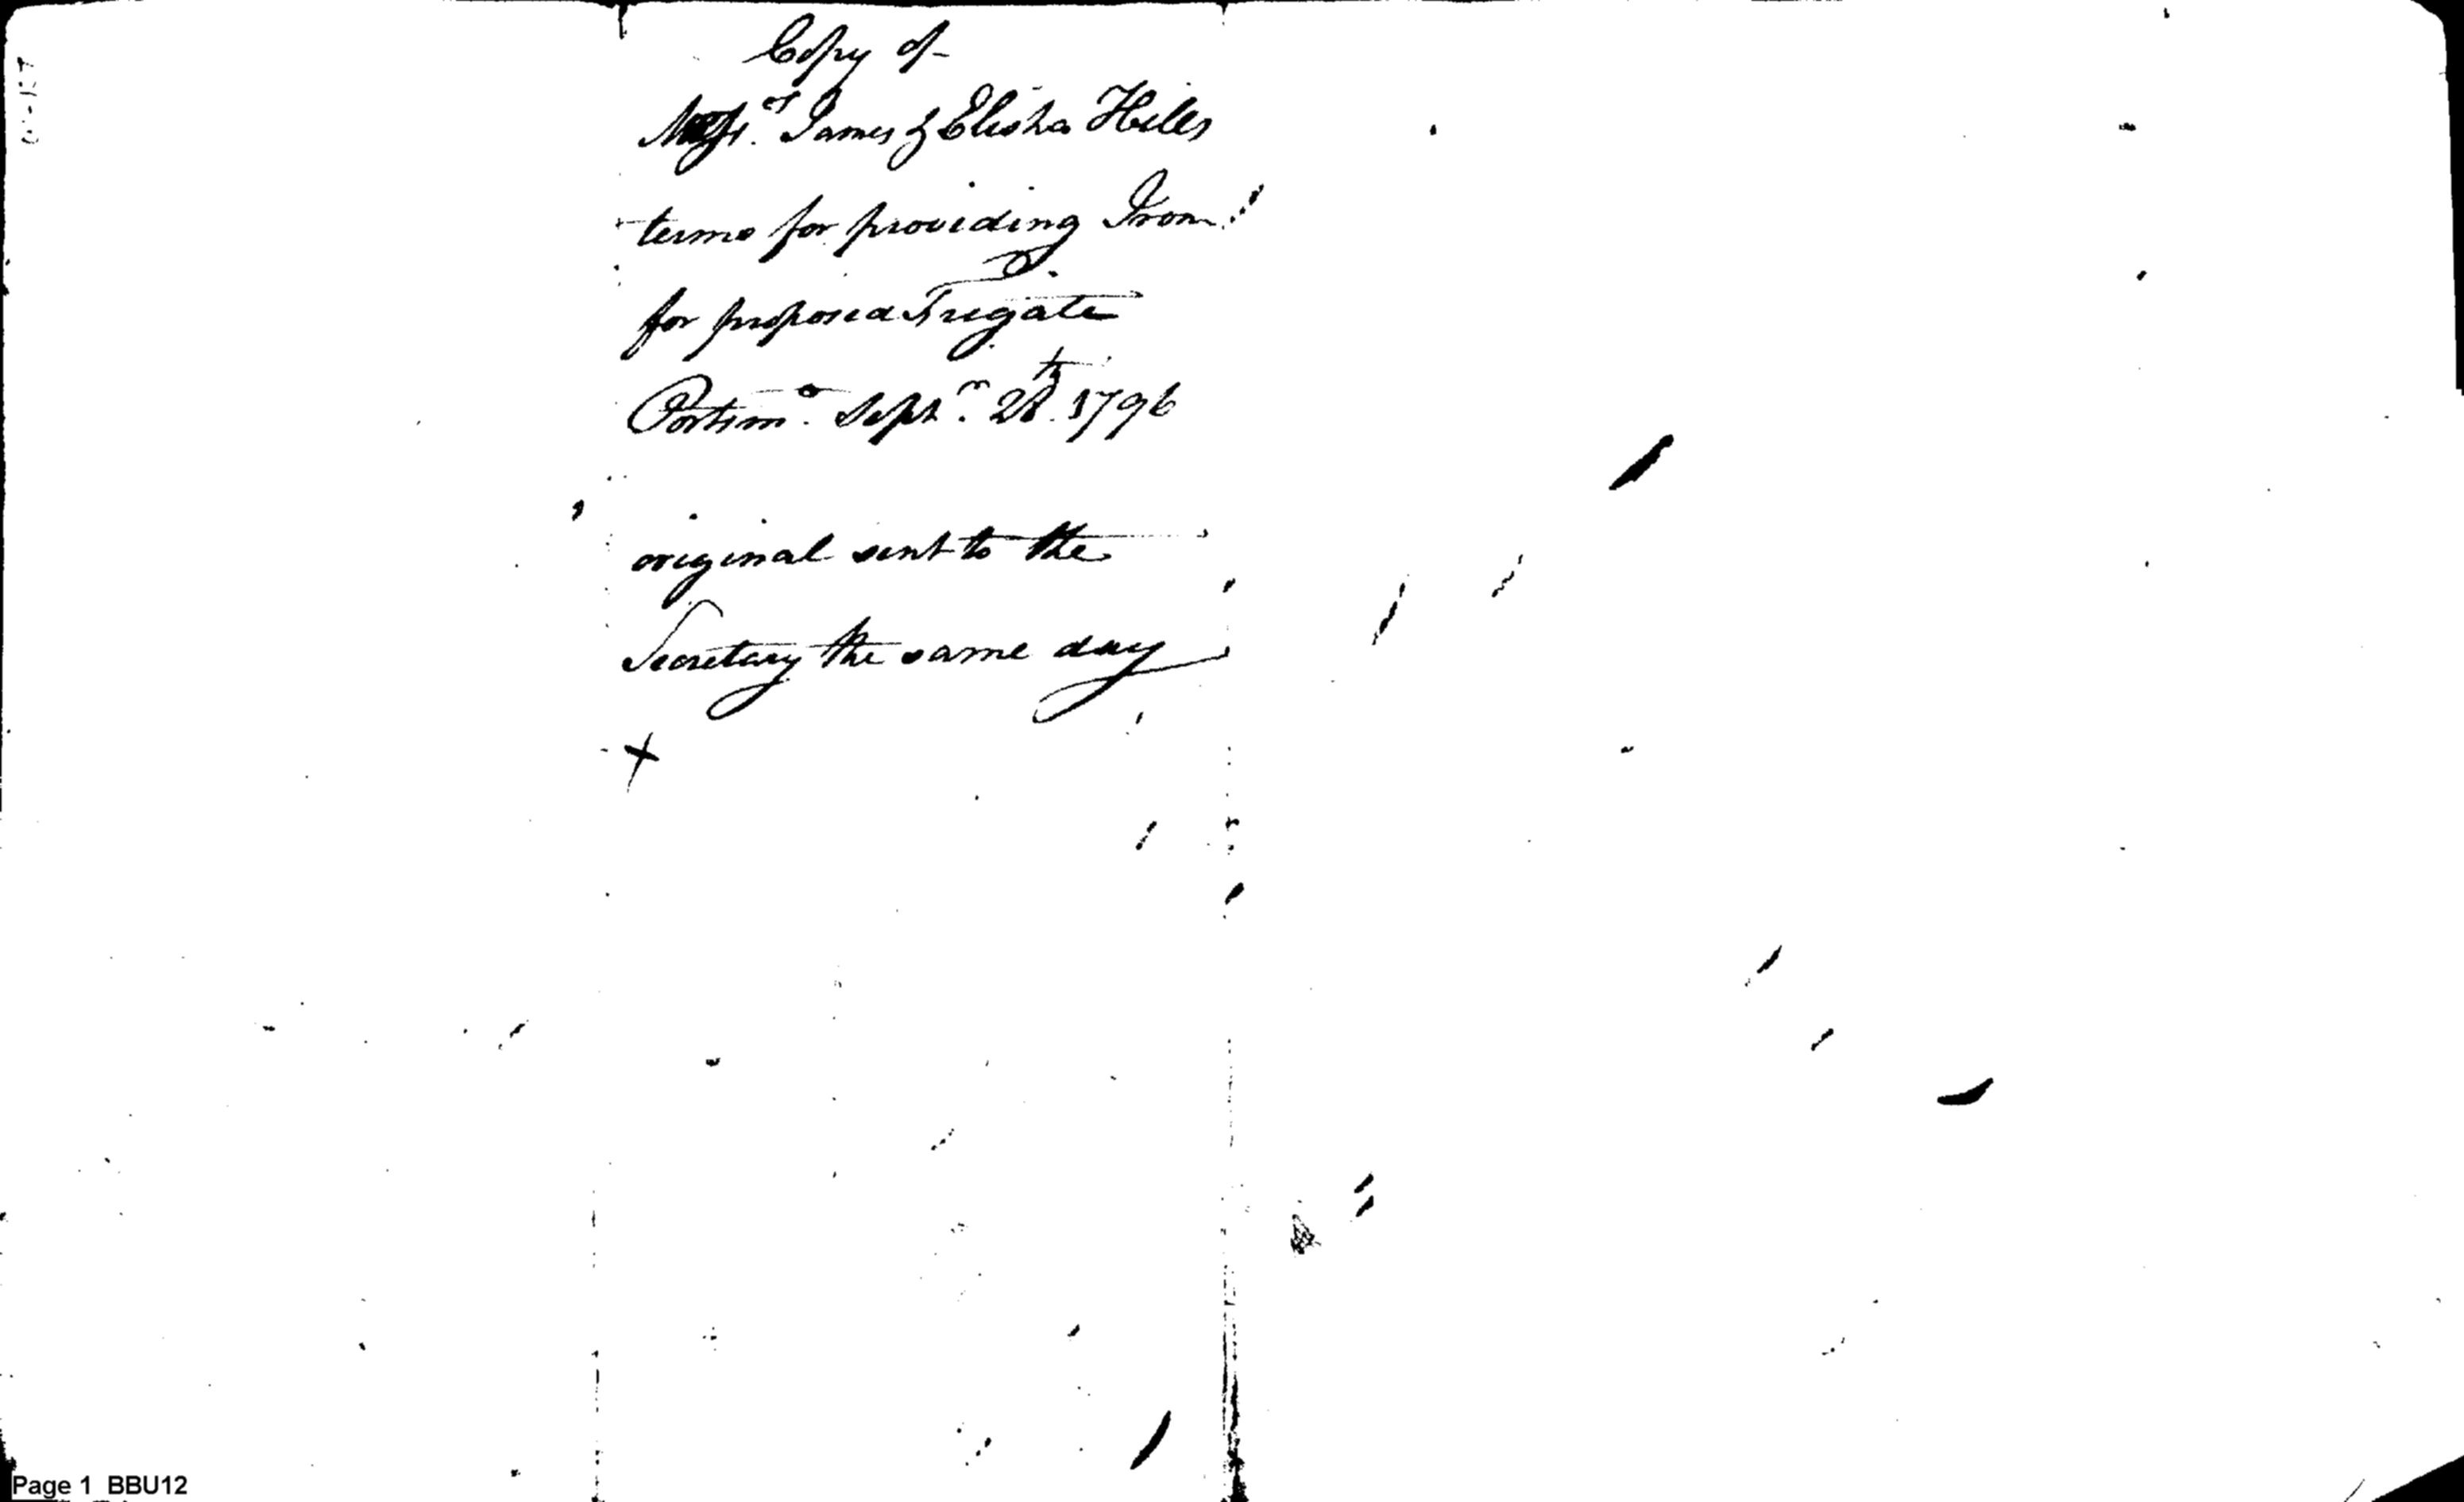 Copy of
Messrs. James & Elisha Hills
terms for providing Iron
for proposed Frigate
Portsmo. Sepr. 28th 1796
original sent to the
Secretary the same day
x
Page 1 BBU12